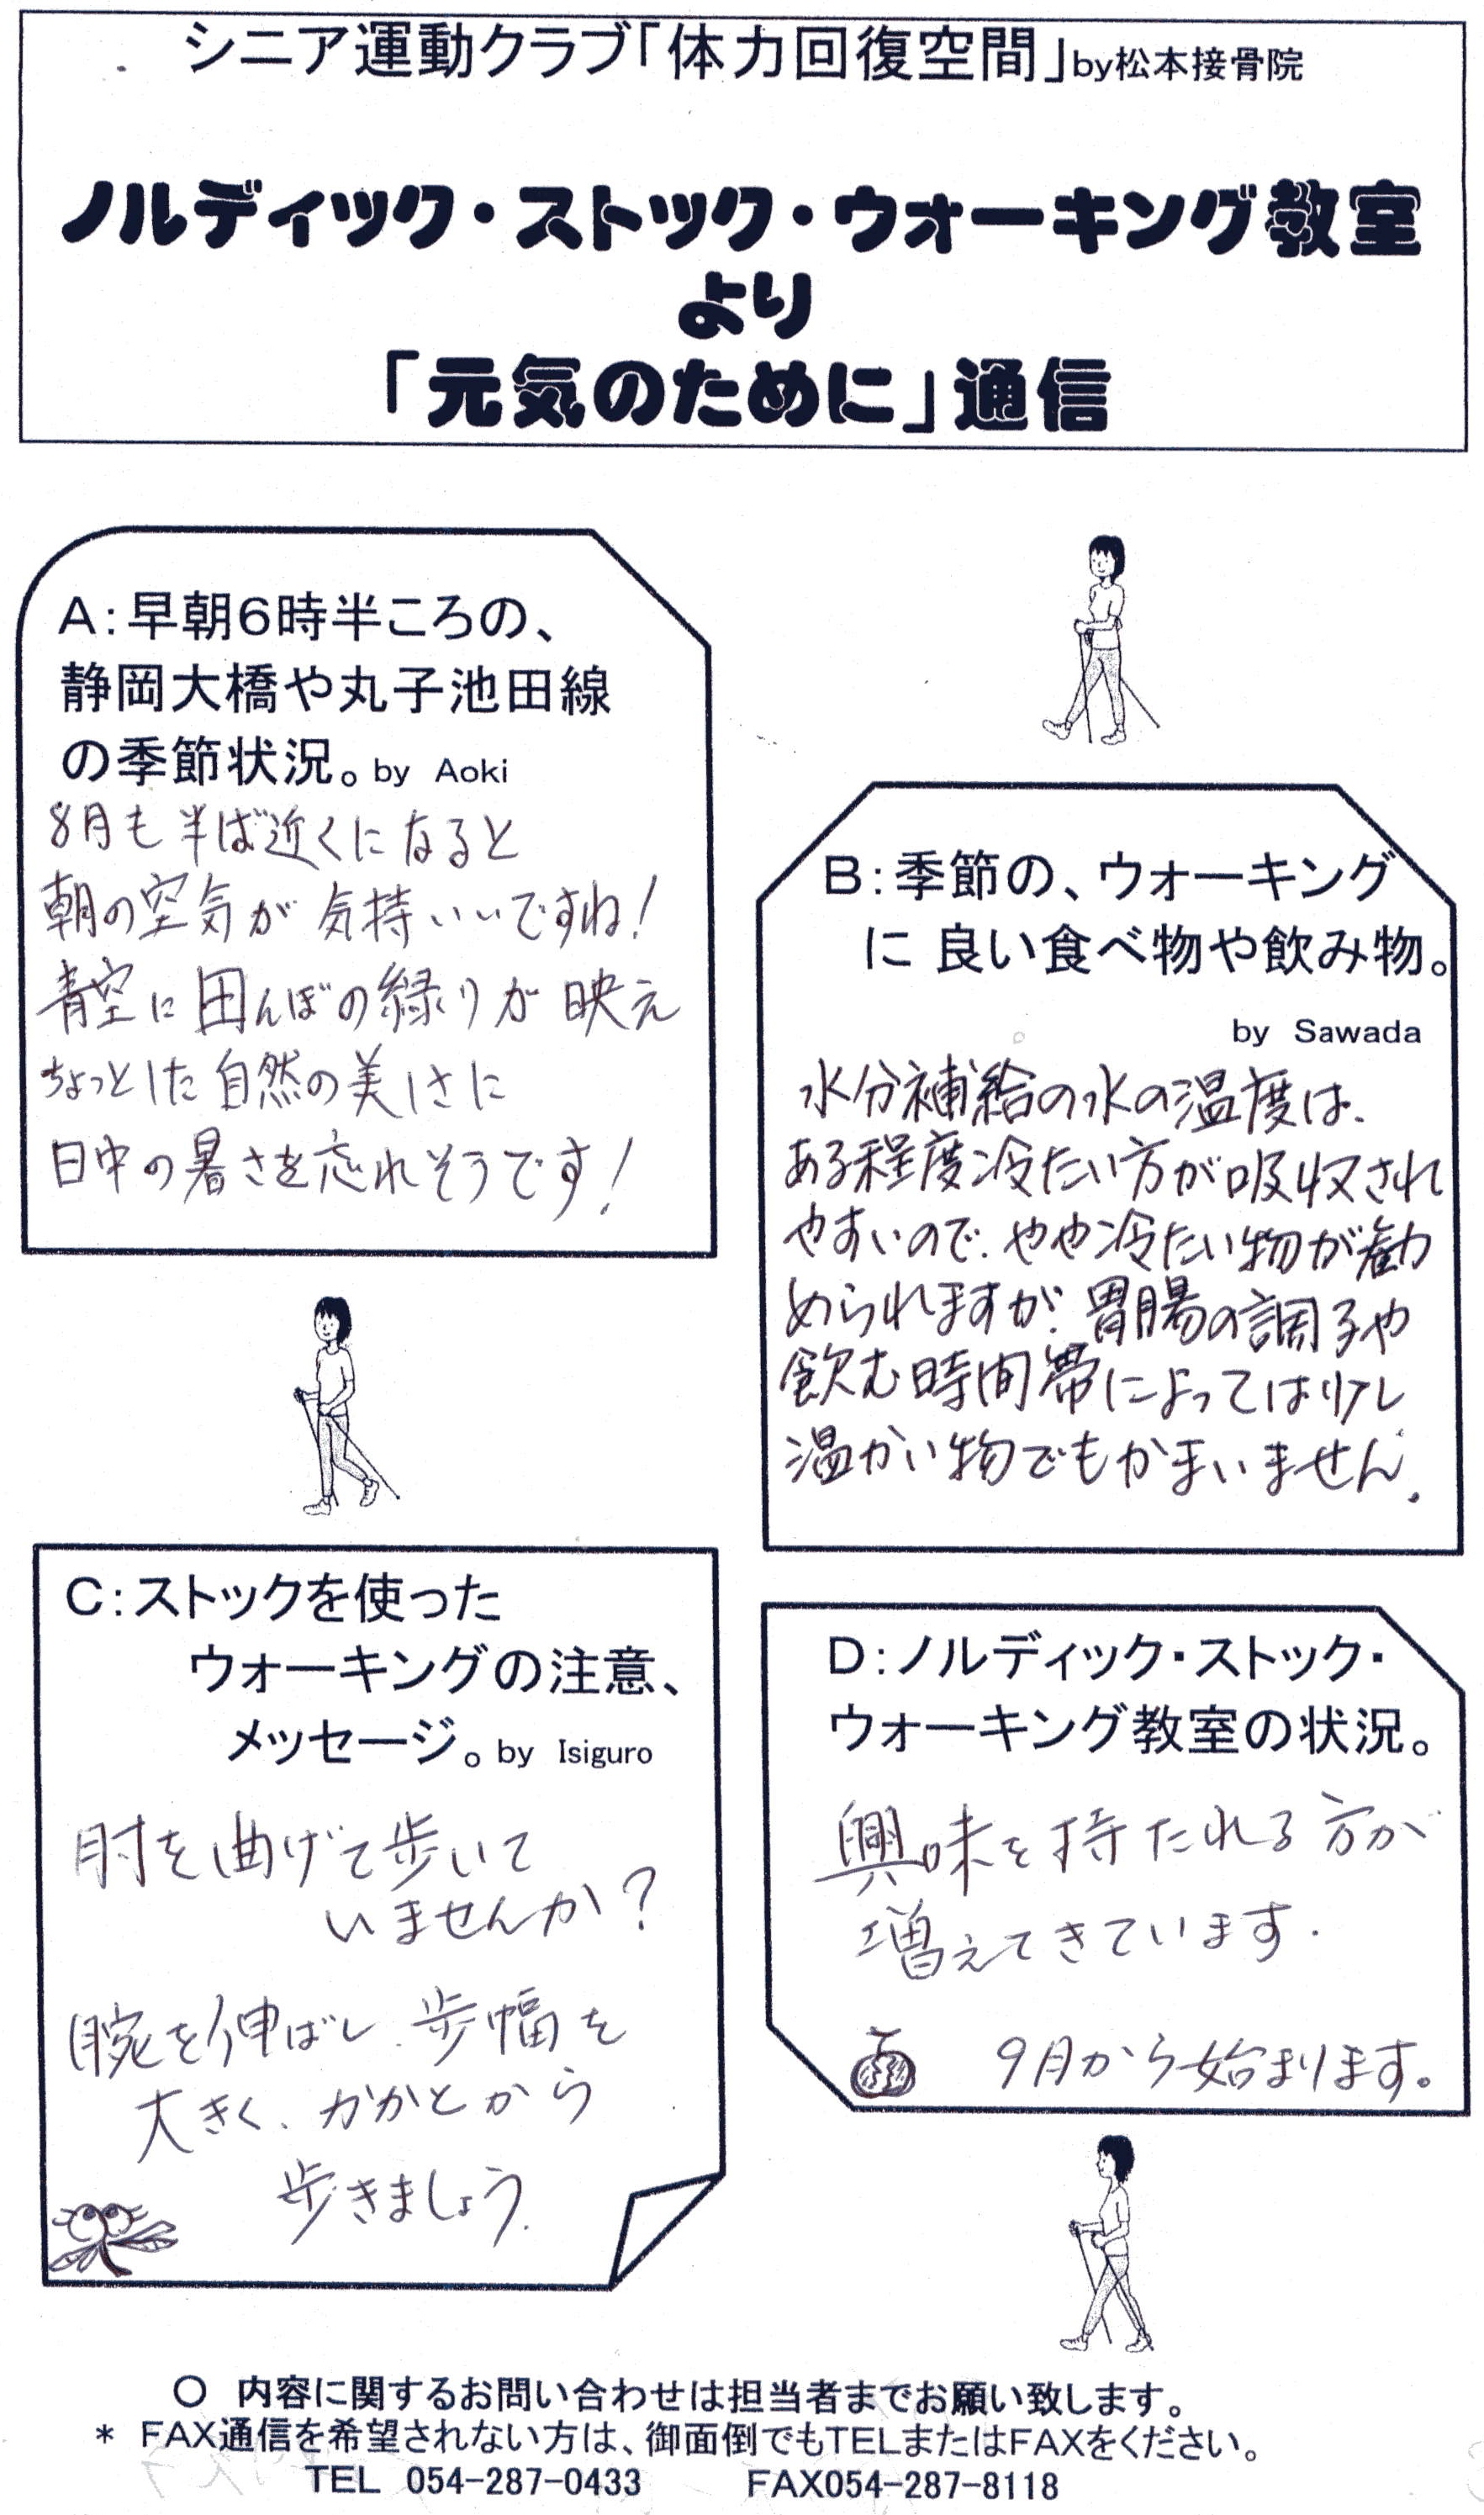 シニア運動クラブ「体力回復空間」by松本接骨院
ノルディック・ストック・ウォーキング教室
より
「元気のために」通信
A:早朝6時半ころの、
静岡大橋や丸子池田線
の季節状況。by Aoki
8月も半ば近くになると
朝の空気が気持いいですね!
青空に田んぼの緑りが映え
ちょっとした自然の美しさに
日中の暑さを忘れそうです!
B:季節の、ウォーキング
に 良い食べ物や飲み物。
by Sawada
水分補給の水の温度は、
ある程度冷たい方が吸収され
やすいので、やや冷たい物が勧
められますが、胃腸の調子や
飲む時間帯によっては
温かい物でもかまいません。
C:ストックを使った
ウォーキングの注意、
メッセージ。by Isiguro
肘を曲げて歩いて
いませんか?
腕を伸ばし、歩幅を
大きく、かかとから
歩きましょう。
D:ノルディック・ストック・
ウォーキング教室の状況。
興味を持たれる方が
増えてきています.
9月から始まります。
○ 内容に関するお問い合わせは担当者までお願い致します。
* FAX通信を希望されない方は、御面倒でもTELまたはFAXをください。
TEL 054-287-0433 FAX054-287-8118